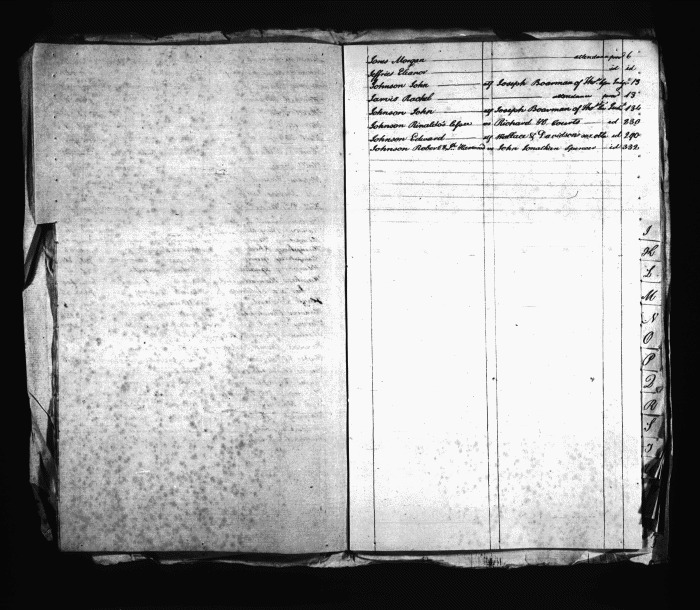 Jones Morgan attendance page 6
Jeffries Eleanor id id
Johnson John ag Joseph Boarman of Thos. 13
Jarvis Rachel attendance page 13
Johnson John ag Joseph Boarman of Thos. 134
Johnson Rinaldo's lessee vs Richard H. Courts id 239
Johnson Edward ag Wallace & Davidson id 290
Johnson Robert & vs John Jonathan Spencer id 332
I
K
L
M
N
O
P
Q
R
S
T